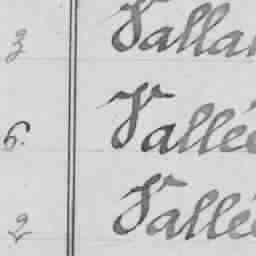 3 Valla
6. Vallé
2 Vallé